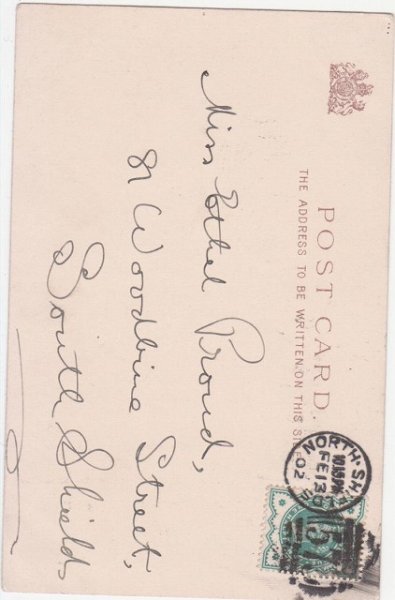 POST CARD.
THE ADDRESS TO BE WRITTEN ON THIS SIDE
Miss Ethel Proud,
81 Woodbine Street,
South Shields
NORTH·SH
FE 13
02